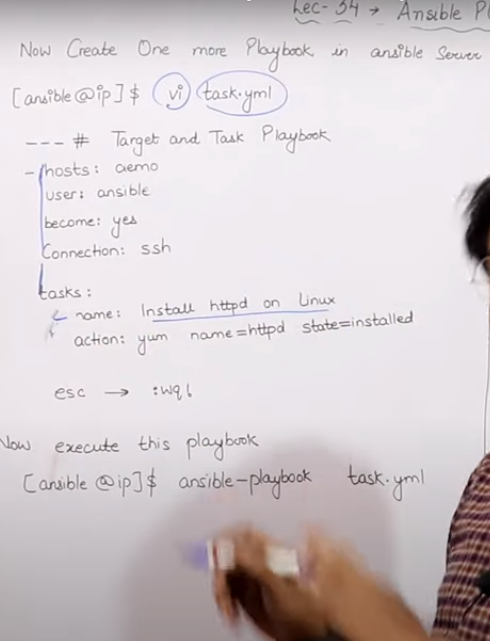 Lec-34 → Ansible Pl
Now Create One more Playbook in ansible Server
[ansible@ip]$ vi task.yml
--- # Target and Task Playbook
- hosts: demo
user: ansible
become: yes
Connection: ssh
tasks:
- name: Install httpd on Linux
action: yum name=httpd state=installed
esc → :wq!
Now execute this playbook
[ansible@ip]$ ansible-playbook task.yml